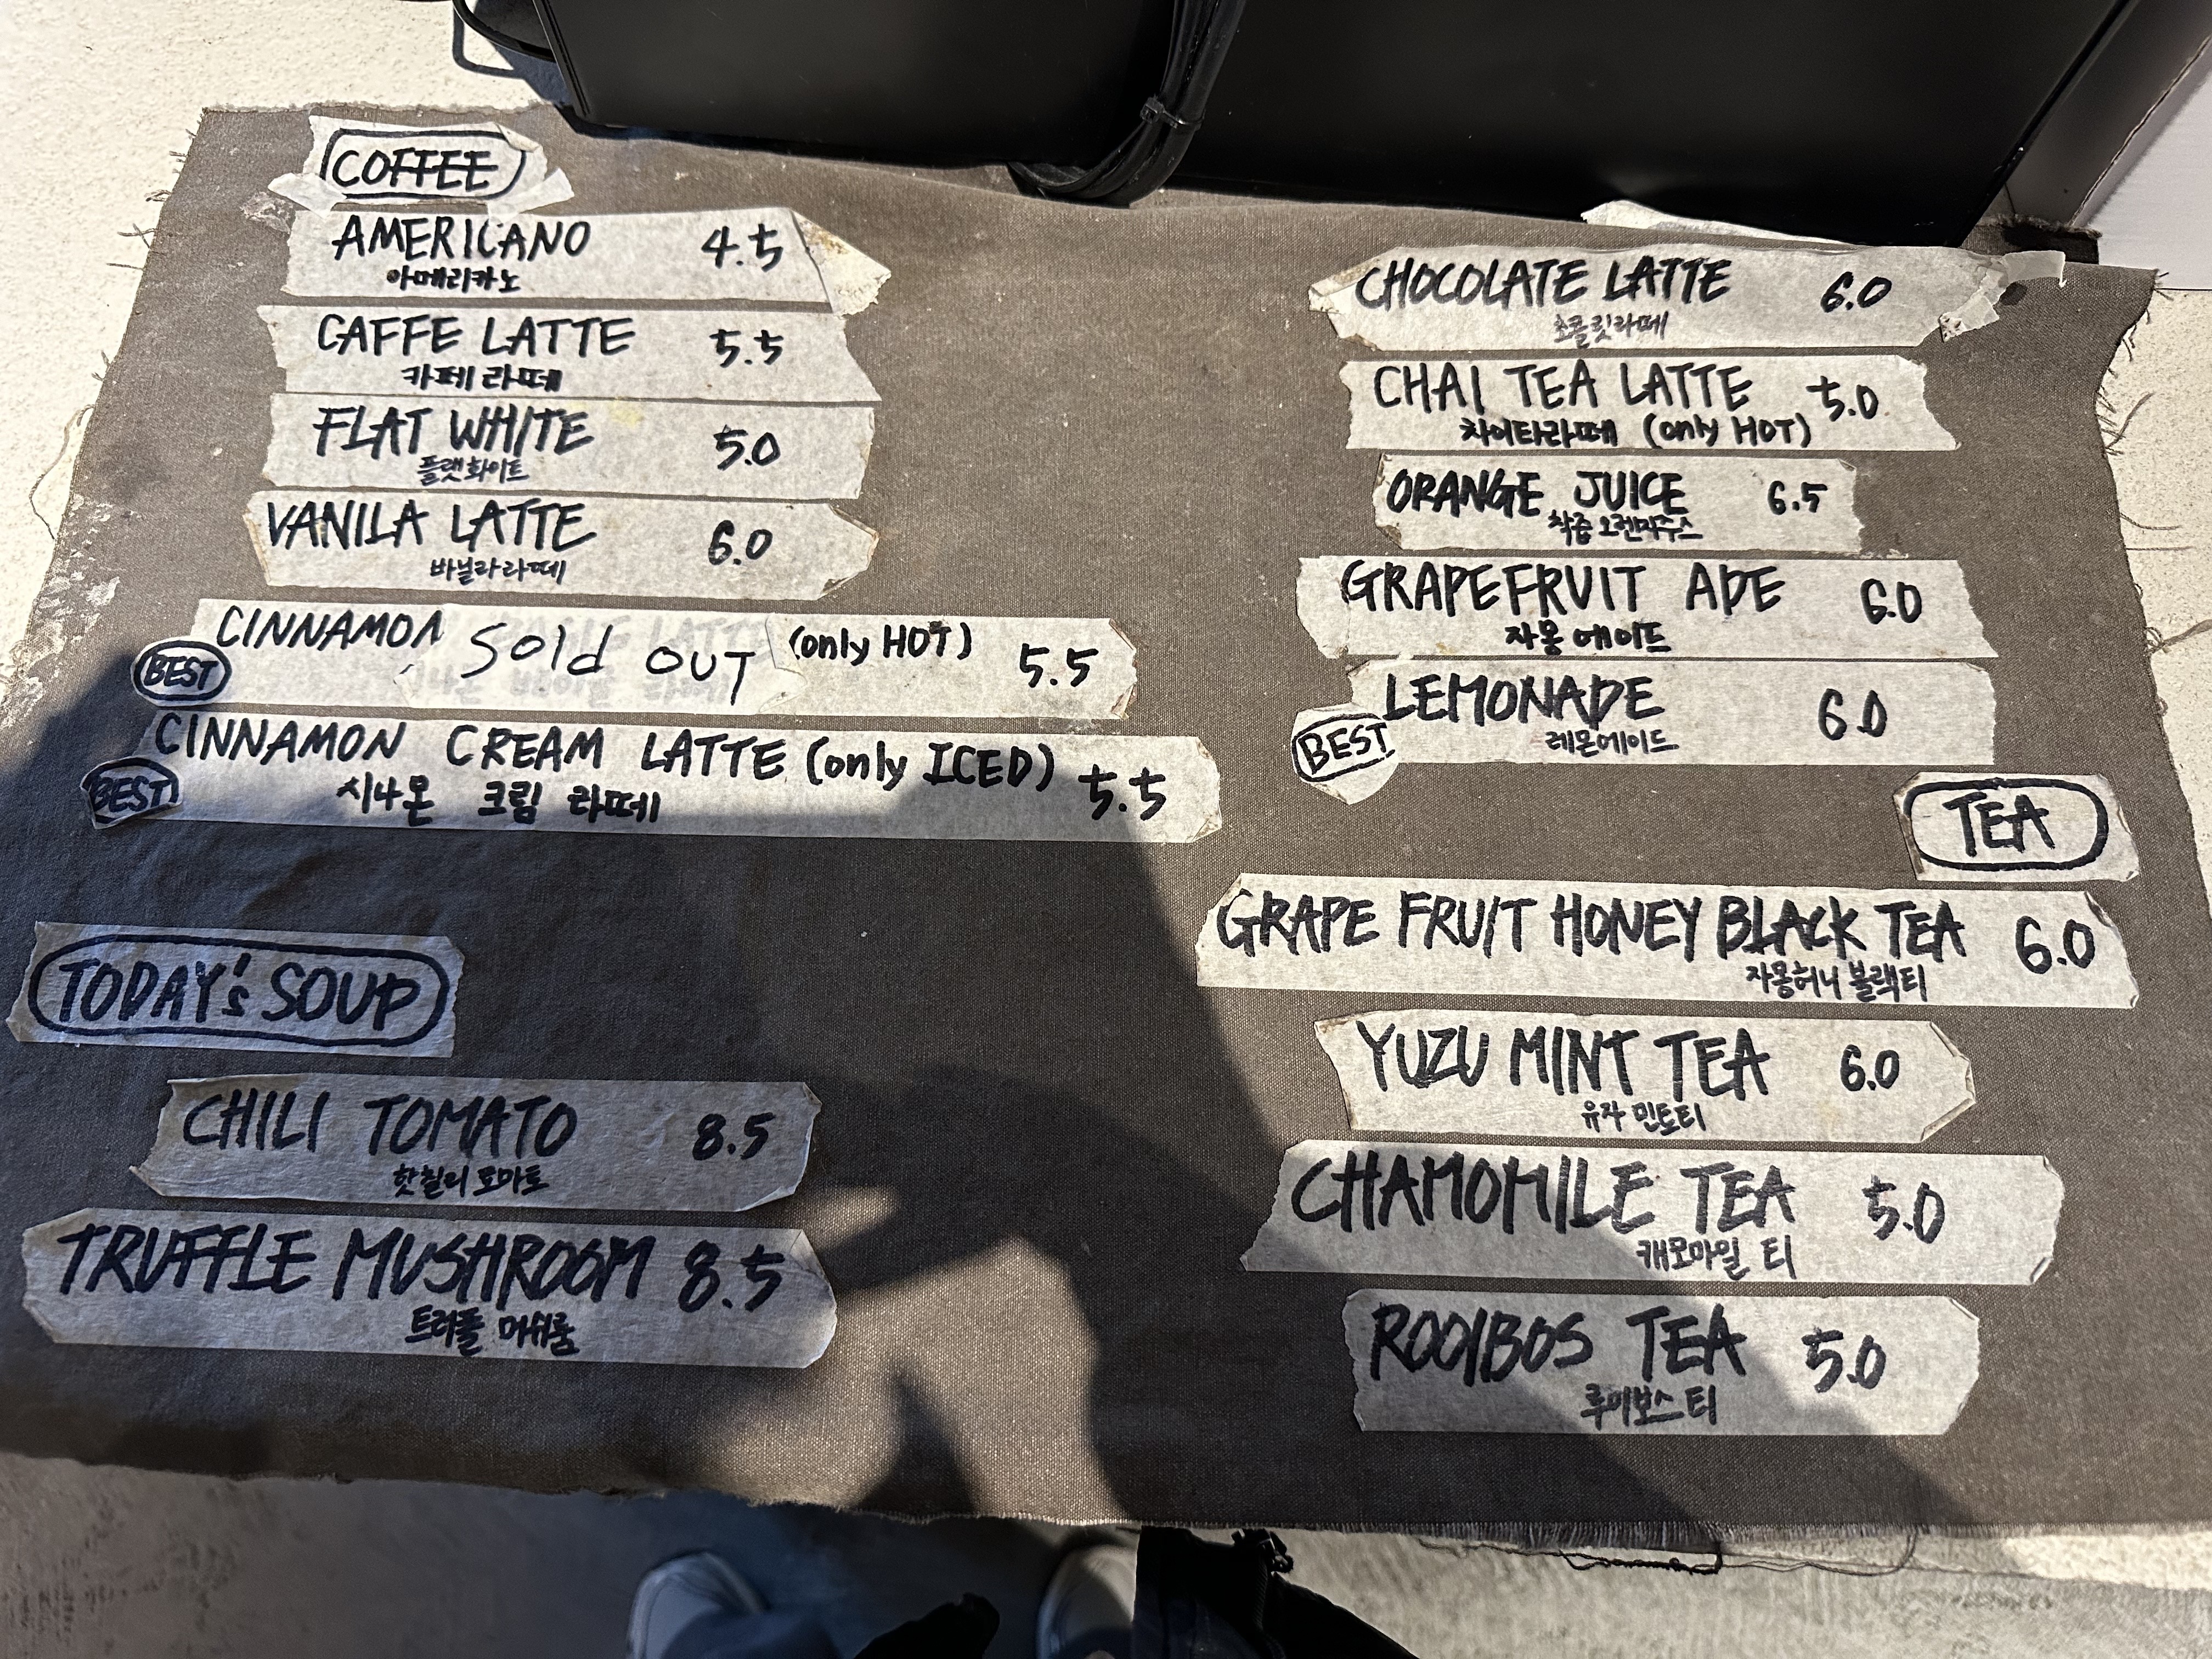 COFFEE
AMERICANO 4.5
아메리카노
CAFFE LATTE 5.5
카페 라떼
FLAT WHITE 5.0
플랫화이트
VANILA LATTE 6.0
바닐라라떼
CINNAMON Sold OUT (only HOT) 5.5
BEST
CINNAMON CREAM LATTE (only ICED) 5.5
BEST!
시나몬 크림 라떼
TODAY's SOUP
CHILI TOMATO 8.5
핫칠리 토마토
TRUFFLE MUSHROOM 8.5
트러플 머쉬룸
CHOCOLATE LATTE 6.0
초콜릿라떼
CHAI TEA LATTE 5.0
차이티라떼 (only HOT)
ORANGE JUICE 6.5
착즙 오렌지주스
GRAPEFRUIT ADE 6.0
자몽 에이드
LEMONADE 6.0
BEST
레몬에이드
TEA
GRAPE FRUIT HONEY BLACK TEA 6.0
자몽허니 블랙티
YUZU MINT TEA 6.0
유자 민트티
CHAMOMILE TEA 5.0
캐모마일 티
ROOIBOS TEA 5.0
루이보스 티